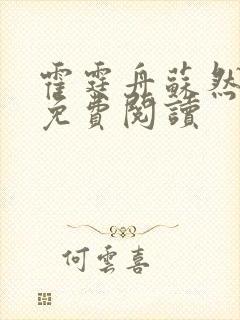 霍霆舟蘇然
免費閱讀
何雲喜